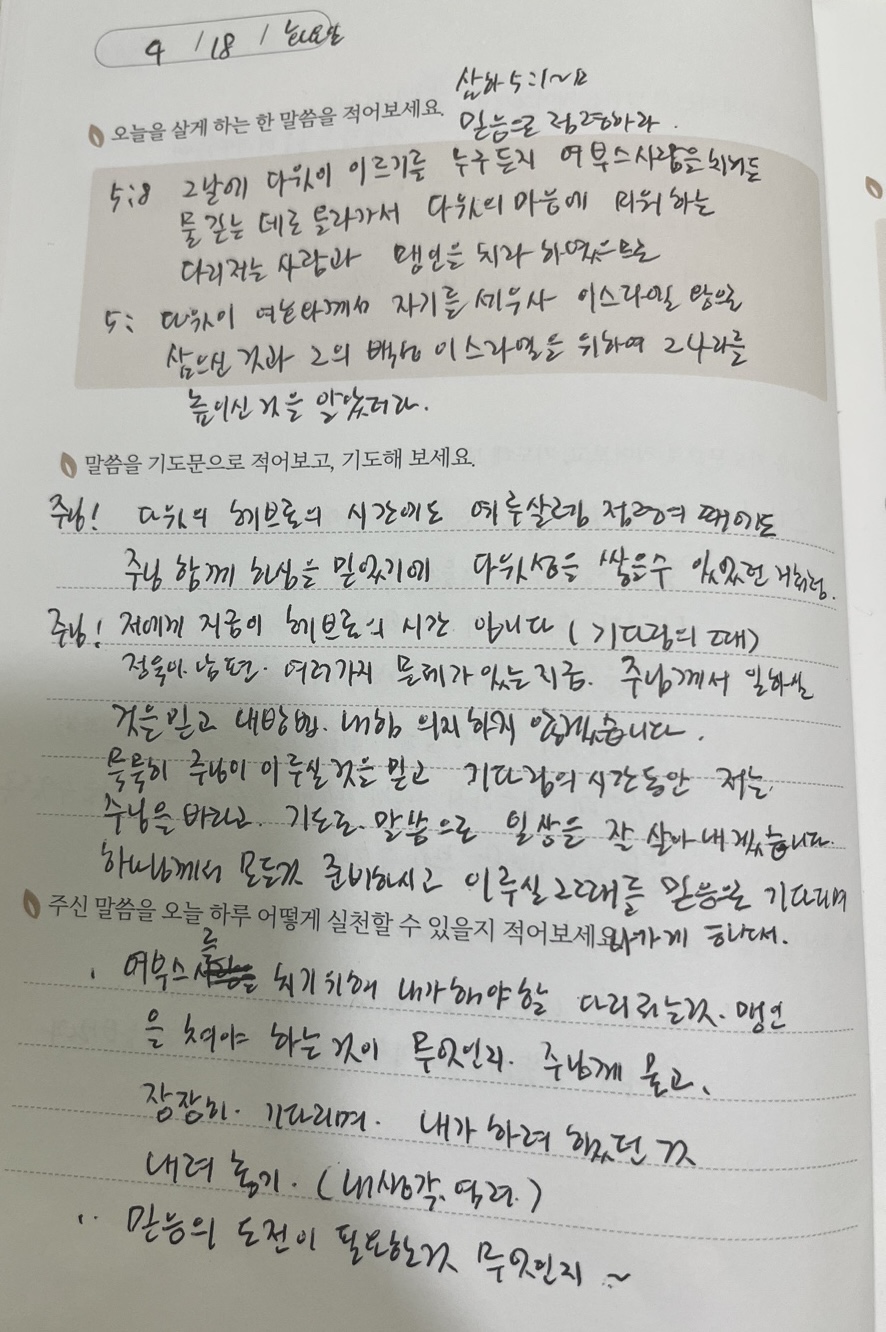 4 / 18 / 화요일
삼하 5:1~12
오늘을 살게 하는 한 말씀을 적어보세요.
믿음으로 점령하라.
5:8 그날에 다윗이 이르기를 누구든지 여부스 사람을 치거든
물 긷는 데로 올라가서 다윗의 마음에 미워하는
다리저는 사람과 맹인을 치라 하였으므로
5: 다윗이 여호와께서 자기를 세우사 이스라엘 왕으로
삼으신 것과 그의 백성 이스라엘을 위하여 그 나라를
높이신 것을 알았더라.
말씀을 기도문으로 적어보고, 기도해 보세요.
주님! 다윗의 헤브론의 시간에도 예루살렘 점령의 때에도
주님 함께 하심을 믿었기에 다윗성을 쌓을수 있었던 거처럼.
주님! 저에게 지금이 헤브론의 시간 입니다 (기다림의 때)
남편. 여러가지 문제가 있는 지금. 주님께서 일하실
것을 믿고 내방법. 내힘 의지하지 않겠습니다.
묵묵히 주님이 이루실 것을 믿고 기다림의 시간동안 저는
주님을 바라고. 기도로. 말씀으로 일상을 잘 살아내겠습니다.
하나님께서 모든것 준비하시고 이루실 그때를 믿음으로 기다리며
주신 말씀을 오늘 하루 어떻게 실천할 수 있을지 적어보세요.
나가게 하소서.
여부스를 치기위해 내가 해야할 다리저는것. 맹인
을 쳐야 하는 것이 무엇인지. 주님께 묻고,
잠잠히. 기다리며. 내가 하려 했던 것
내려 놓기. (내생각, 염려.)
믿음의 도전이 필요한것 무엇인지 ~